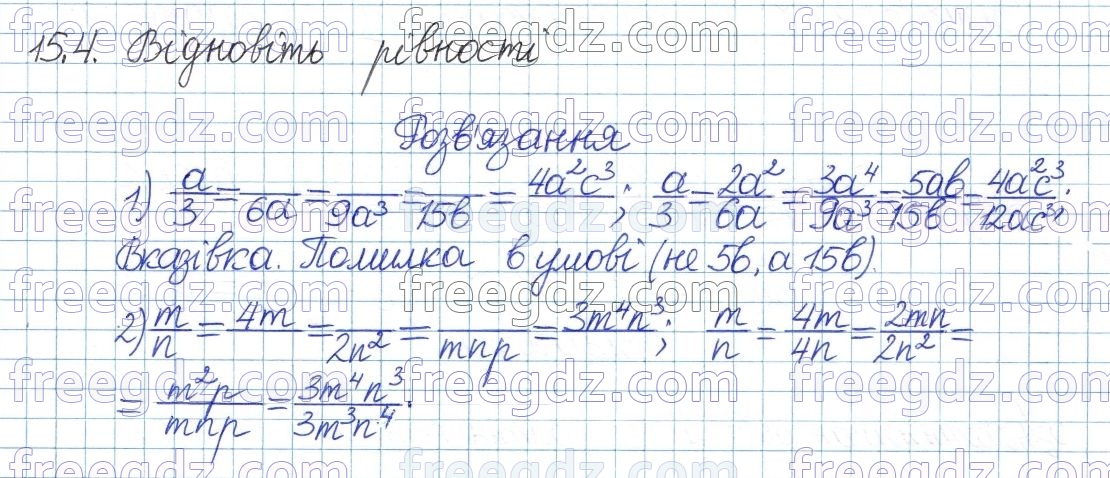 15.4. Відновіть рівності
Розв'язання
1) a/3 = —/6a = —/9a³ = —/15b = 4a²c³/—; a/3 = 2a²/6a = 3a⁴/9a³ = 5ab/15b = 4a²c³/12ac³;
Вказівка. Помилка в умові (не 5b, а 15b).
2) m/n = 4m/— = —/2n² = —/mnp = 3m⁴n³/—; m/n = 4m/4n = 2mn/2n² =
= m²p/mnp = 3m⁴n³/3m³n⁴.
freegdz.com